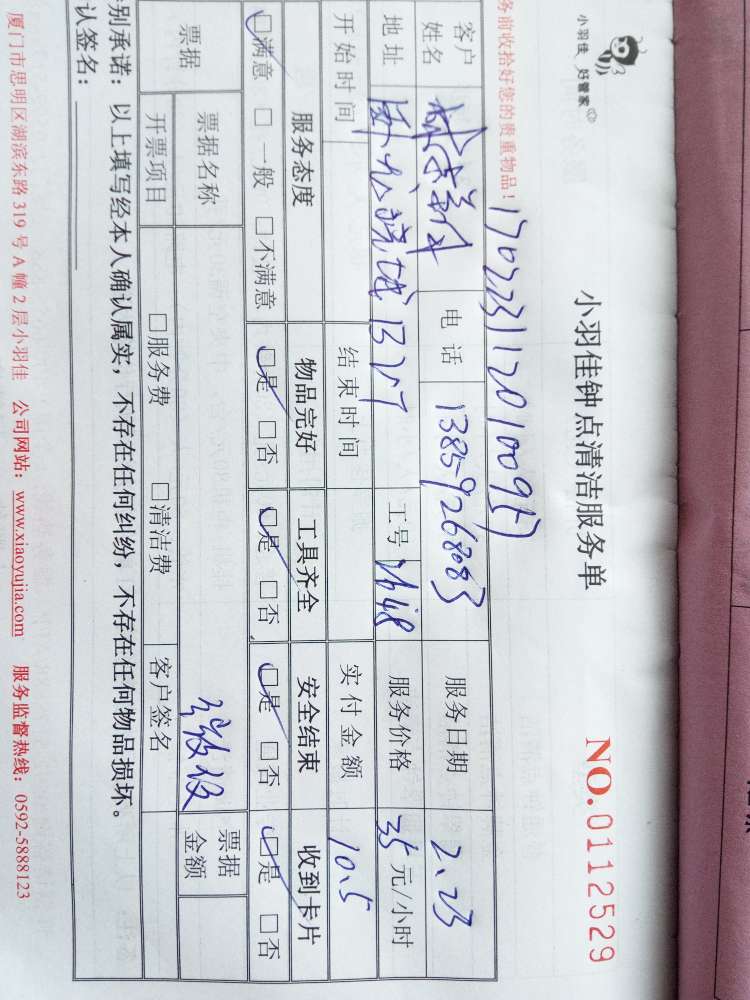 小羽佳 好管家
小羽佳钟点清洁服务单
NO.0112529
务前收拾好您的贵重物品！
客户姓名 电话 13859268083 服务日期 2.23
地址 工号 服务价格 35元/小时
开始时间 结束时间 实付金额 10.5
服务态度 物品完好 工具齐全 安全结束 收到卡片
□满意 □一般 □不满意 □是 □否 □是 □否 □是 □否 □是 □否
票据 票据名称 票据金额
开票项目 □服务费 □清洁费 客户签名
别承诺：以上填写经本人确认属实，不存在任何纠纷，不存在任何物品损坏。
认签名：
厦门市思明区湖滨东路319号A幢2层小羽佳 公司网站：www.xiaoyujia.com 服务监督热线：0592-5888123